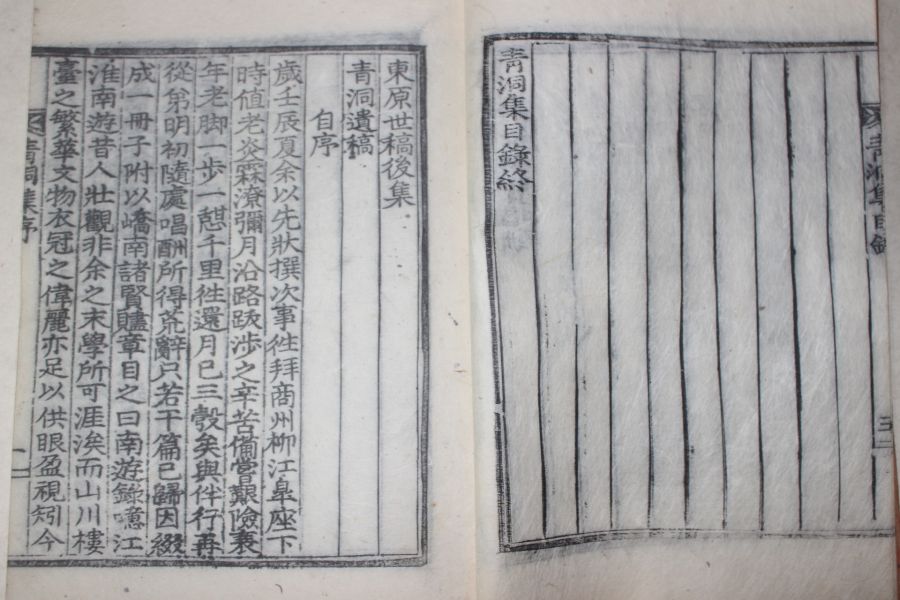 青洞集目錄
三
青洞集目錄終
東原世稿後集
青洞遺稿
自序
歲壬辰夏余以先狀撰次事徃拜商州柳江皐座下
時值老炎霖潦彌月沿路跋涉之辛苦備嘗艱險衰
年老脚一步一憩千里徃還月已三彀矣與伴行再
從弟明初隨處唱酬所得荒辭只若干篇已歸因綴
成一冊子附以嶠南諸賢贐章目之曰南遊錄噫江
淮南遊昔人壯觀非余之末學所可涯涘而山川樓
臺之繁華文物衣冠之偉麗亦足以供眼盈視矧今
青洞集序
一